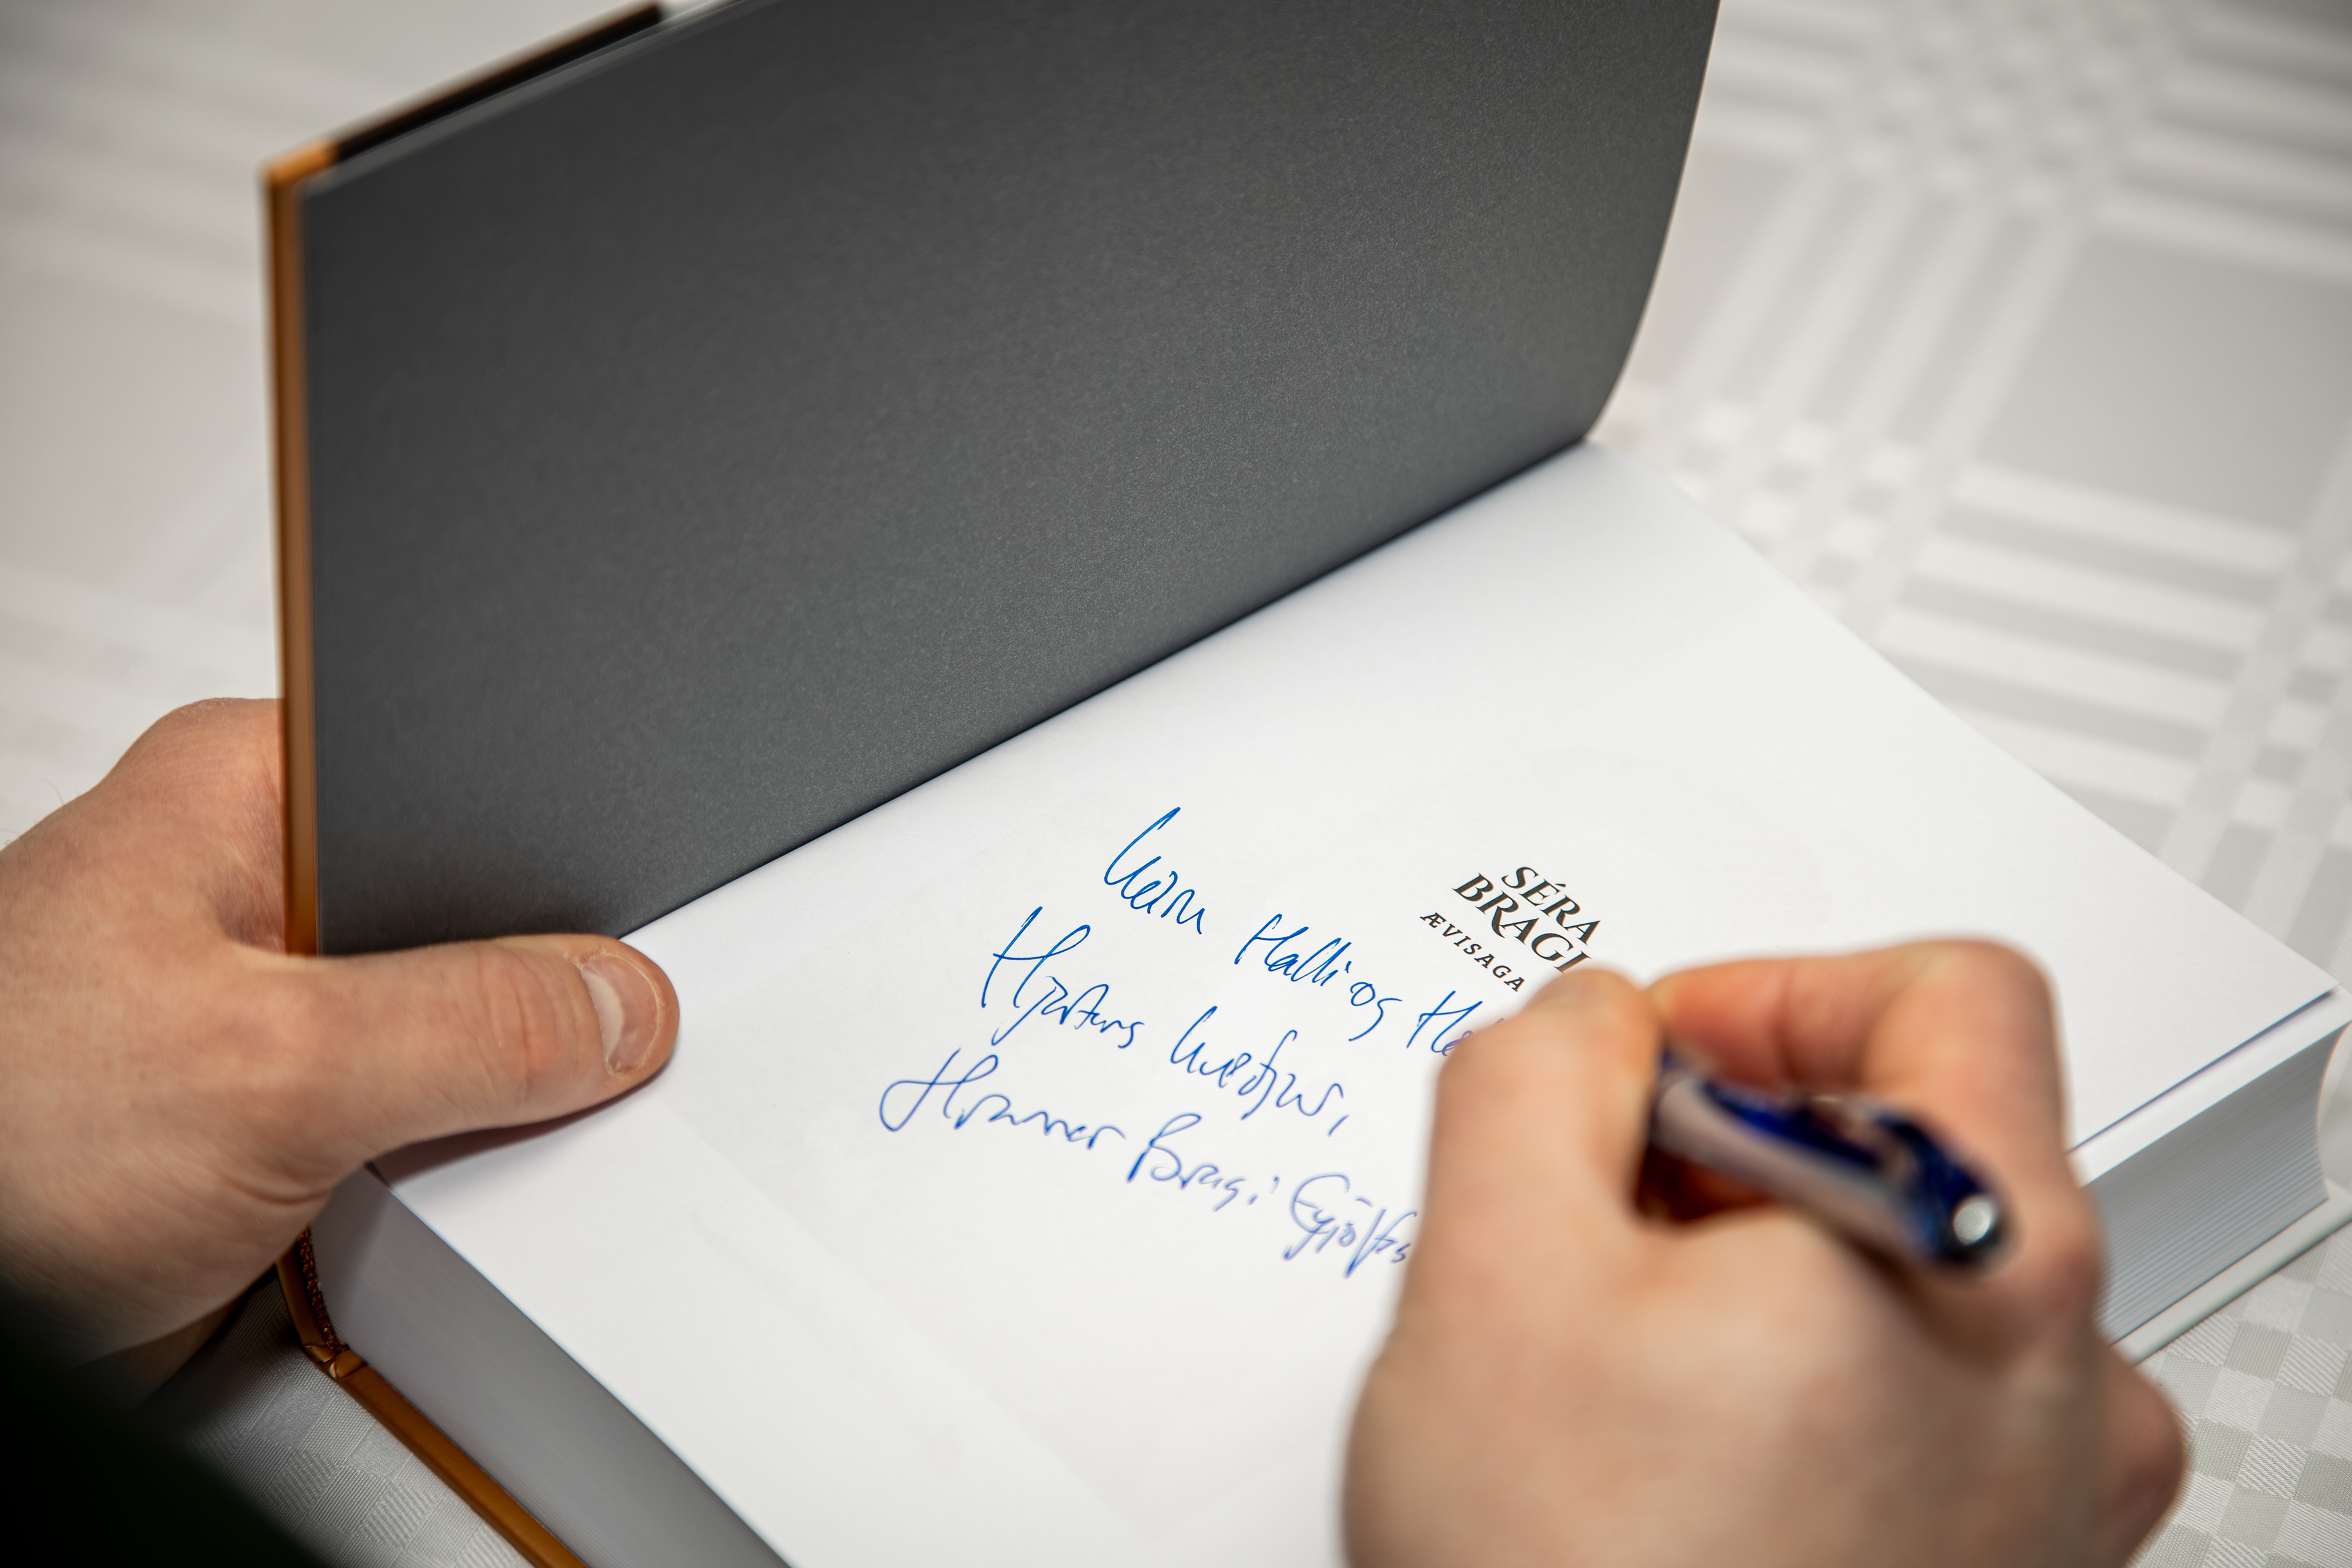 SÉRA
BRAGI
ÆVISAGA
Kæru Halli og He
Hjartans kveðjur,
Hrannar Bragi Eyjólfs